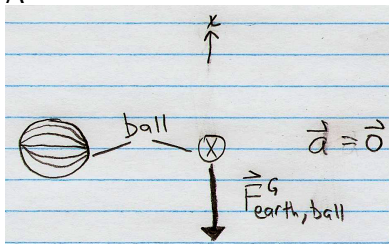 x
ball
a⃗ = 0⃗
F⃗ᴳ earth, ball